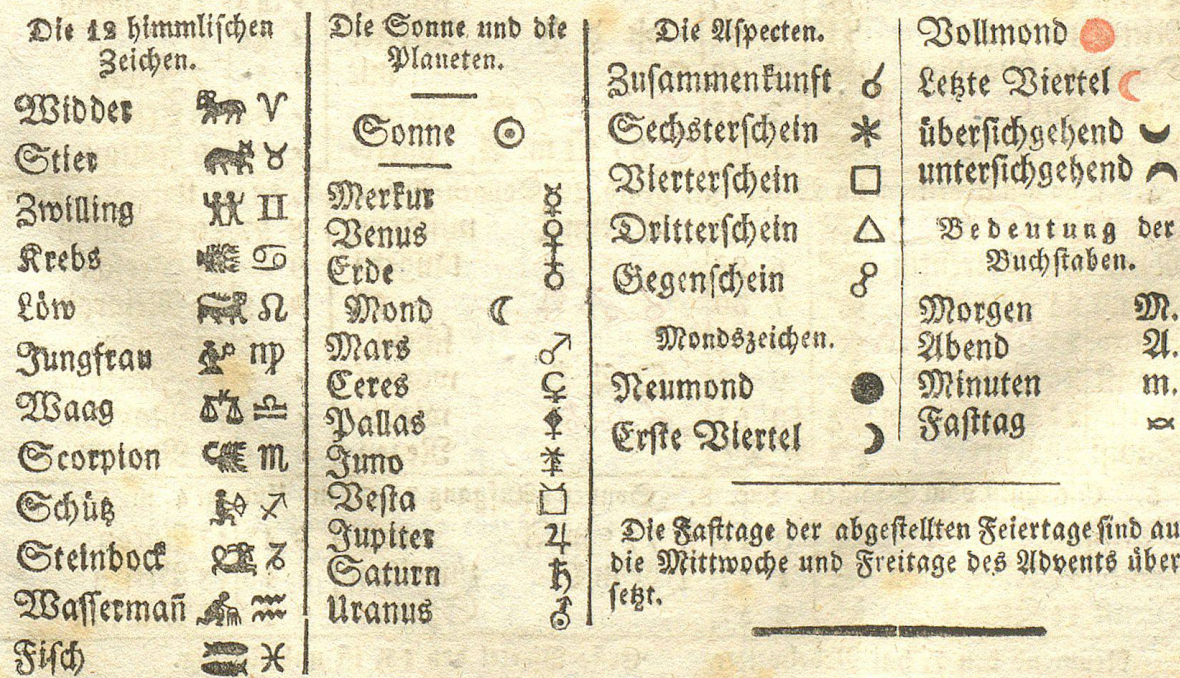 Die 12 himmlischen
Zeichen.
Widder ♈
Stier ♉
Zwilling ♊
Krebs ♋
Löw ♌
Jungfrau ♍
Waag ♎
Scorpion ♏
Schütz ♐
Steinbock ♑
Wassermañ ♒
Fisch ♓
Die Sonne und die
Planeten.
Sonne ☉
Merkur ☿
Venus ♀
Erde ♁
Mond ☾
Mars ♂
Ceres ⚳
Pallas ⚴
Juno ⚵
Vesta ⚶
Jupiter ♃
Saturn ♄
Uranus ⛢
Die Aspecten.
Zusammenkunft ☌
Sechsterschein ⚹
Vierterschein □
Dritterschein △
Gegenschein ☍
Mondszeichen.
Neumond ●
Erste Viertel ☽
Vollmond
Letzte Viertel ☾
übersichgehend
untersichgehend
Bedeutung der
Buchstaben.
Morgen M.
Abend A.
Minuten m.
Fasttag
Die Fasttage der abgestellten Feiertage sind au
die Mittwoche und Freitage des Advents über
setzt.